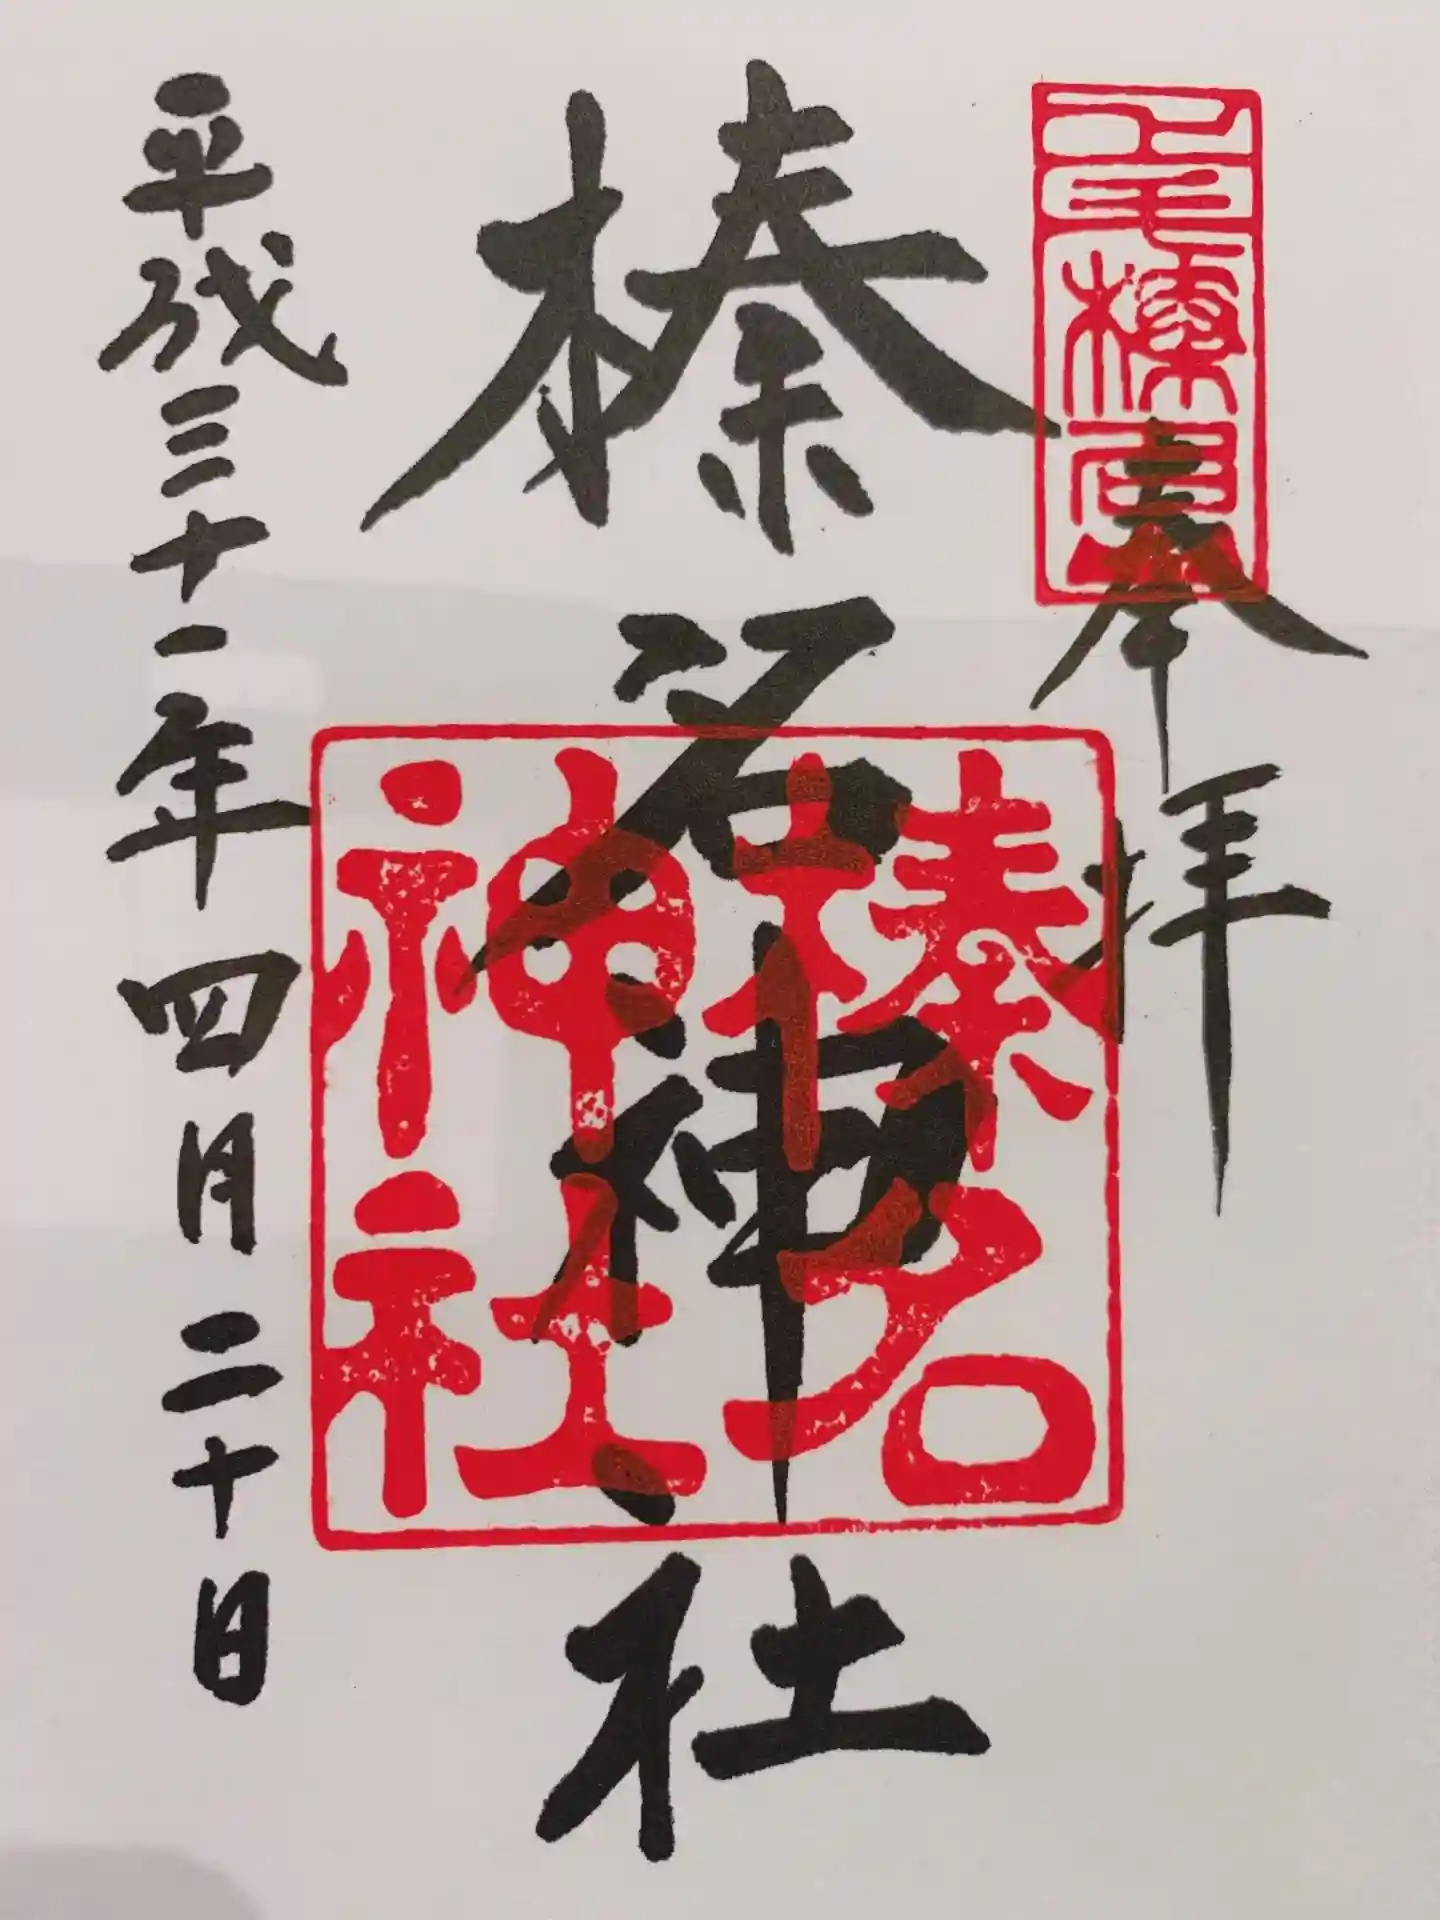 奉拝
榛名神社
榛名
神社
平成三十一年四月二十日